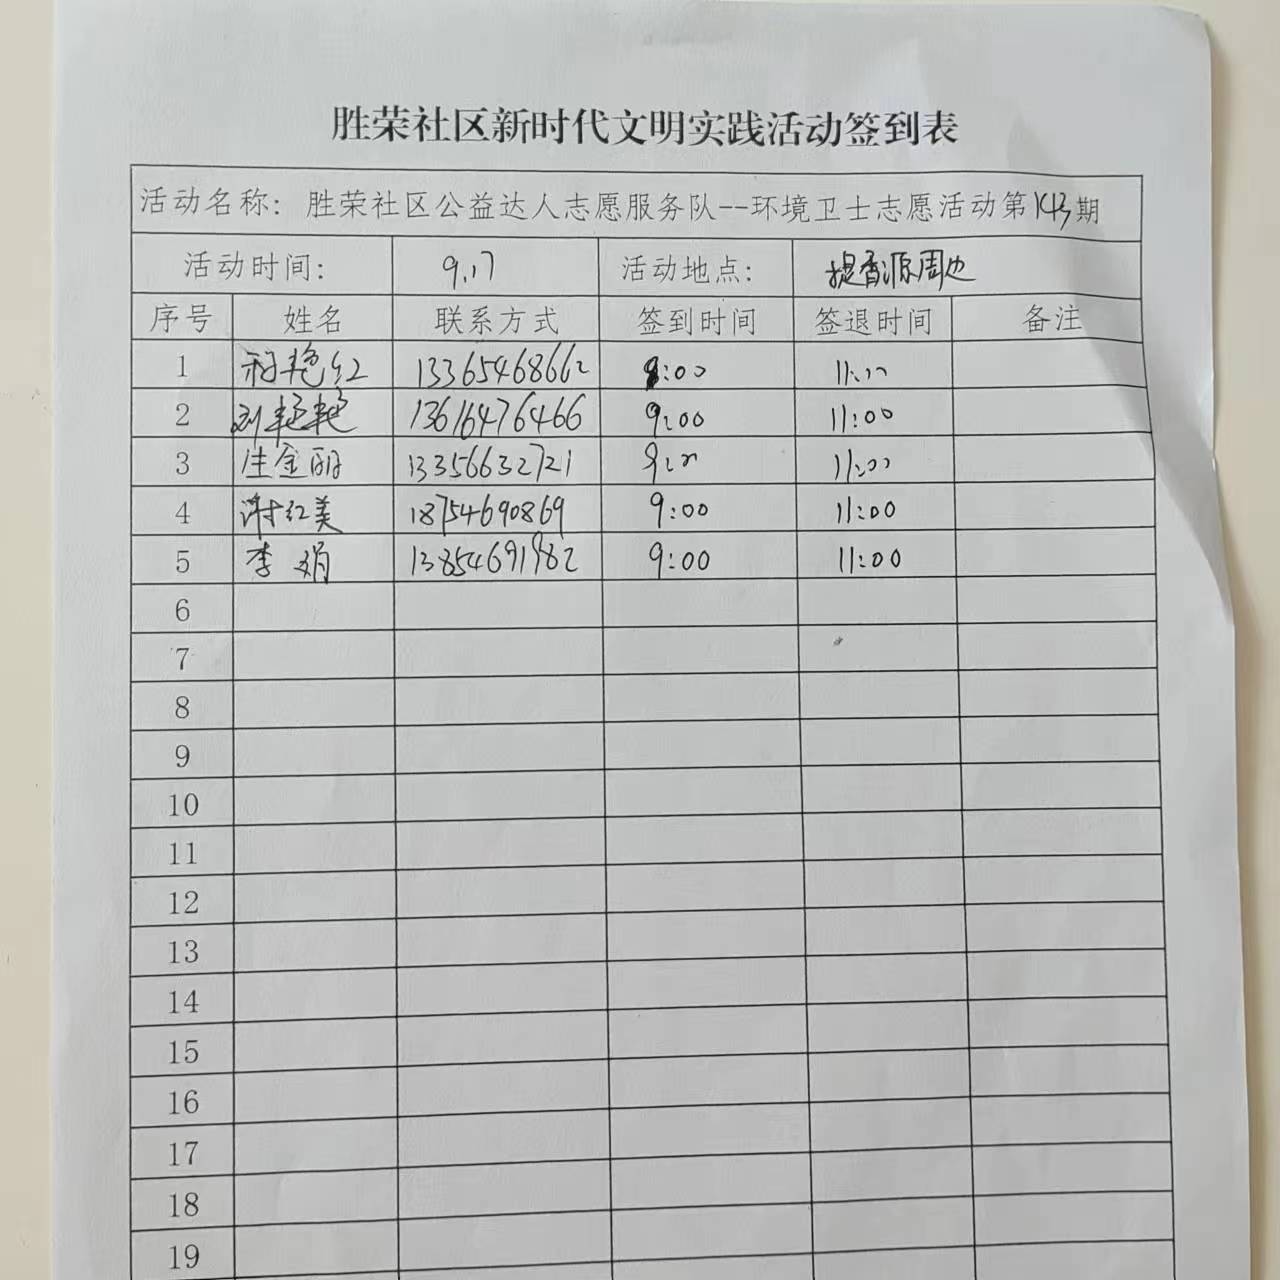 胜荣社区新时代文明实践活动签到表
活动名称：胜荣社区公益达人志愿服务队--环境卫士志愿活动第143期
活动时间： 9.17 活动地点： 提香源周边
序号 姓名 联系方式 签到时间 签退时间 备注
1 艳红 13365468662 9:00 11:00
2 刘艳艳 13616476466 9:00 11:00
3 生金丽 13356632721 9:00 11:00
4 谢红美 18754690869 9:00 11:00
5 李娟 13854691982 9:00 11:00
6
7
8
9
10
11
12
13
14
15
16
17
18
19